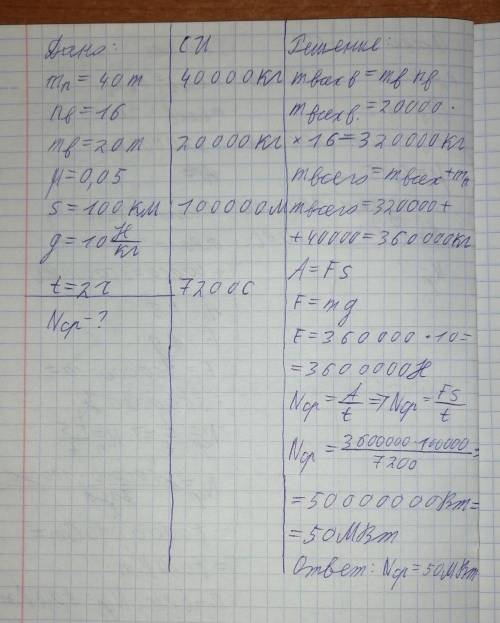 Дано:
mп = 40 т
nв = 16
mв = 20 т
μ = 0,05
s = 100 км
g = 10 Н/кг
t = 2 ч
Nср - ?
СИ
40000 кг
20000 кг
100000 м
7200 с
Решение:
mвсех в = mв nв
mвсех в. = 20000 ·
× 16 = 320000 кг
mвсего = mвсех + mп
mвсего = 320000 +
+ 40000 = 360000 кг
A = Fs
F = mg
F = 360000 · 10 =
= 3600000 Н
Nср = A/t ⇒ Nср = Fs/t
Nср = 3600000·100000/7200 =
= 50000000 Вт =
= 50 МВт
Ответ: Nср = 50 МВт